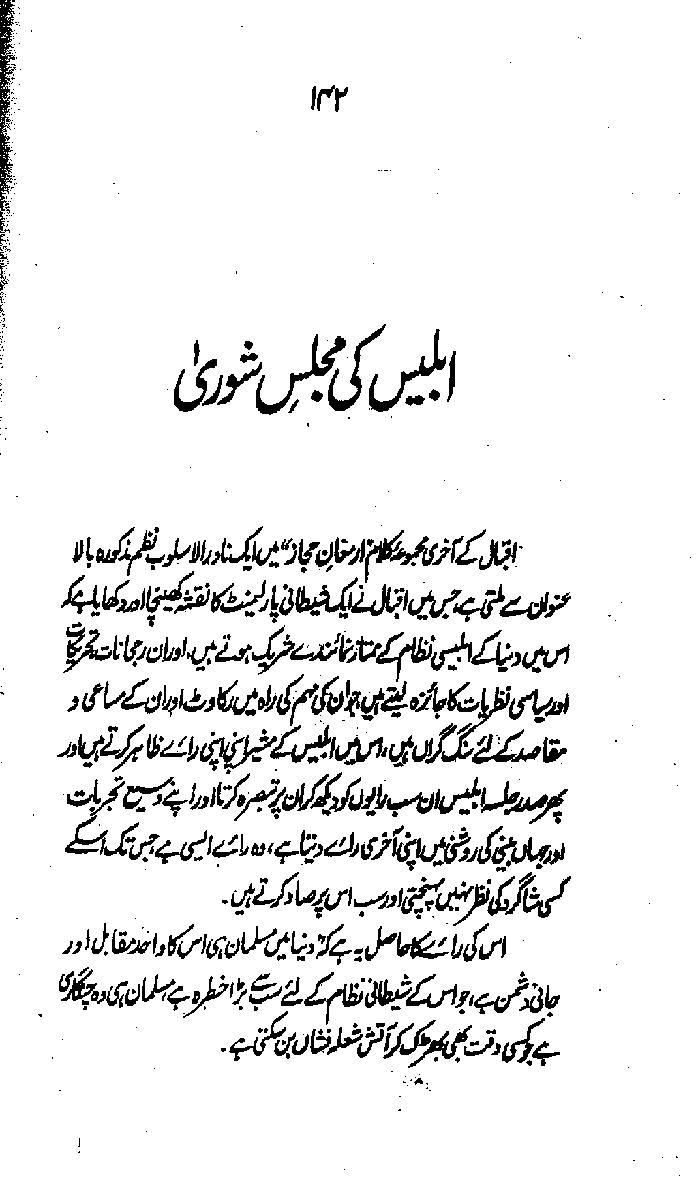 ۱۴۲
ابلیس کی مجلسِ شوریٰ
اقبال کے آخری مجموعۂ کلام "ارمغانِ حجاز" میں ایک نادرالاسلوب نظم مذکورہ بالا
عنوان سے ملتی ہے، جس میں اقبال نے ایک شیطانی پارلیمنٹ کا نقشہ کھینچا اور دکھایا ہے کہ
اس میں دنیا کے ابلیسی نظام کے ممتاز نمائندے شریک ہوتے ہیں، اور ان رجحانات تحریکات
اور سیاسی نظریات کا جائزہ لیتے ہیں جو ان کی مہم کی راہ میں رکاوٹ اور ان کے مساعی و
مقاصد کے لئے سنگ گراں ہیں، اس میں ابلیس کے مشیر اپنی اپنی رائے ظاہر کرتے ہیں اور
پھر صدر جلسہ ابلیس ان سب رایوں کو دیکھ کر ان پر تبصرہ کرتا اور اپنے وسیع تجربات
اور جہاں بینی کی روشنی میں اپنی آخری رائے دیتا ہے، وہ رائے ایسی ہے جس تک اسکے
کسی شاگرد کی نظر نہیں پہنچتی اور سب اس پر صاد کرتے ہیں۔
اس کی رائے کا حاصل یہ ہے کہ دنیا میں مسلمان ہی اس کا واحد مقابل اور
جانی دشمن ہے، جو اس کے شیطانی نظام کے لئے سب سے بڑا خطرہ ہے، مسلمان ہی وہ چنگاری
ہے جو کسی وقت بھی بھڑک کر آتش شعلہ فشاں بن سکتی ہے۔